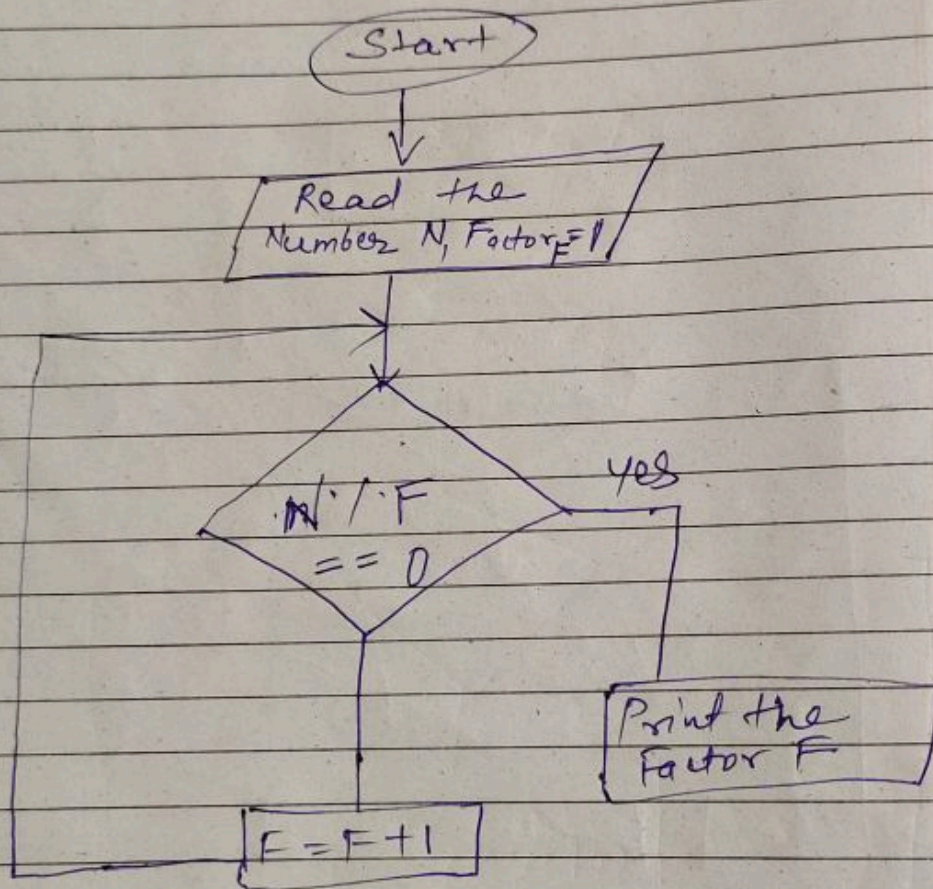 Start
Read the
Number N, Factor F=1
N % F
== 0
yes
Print the
Factor F
F = F + 1